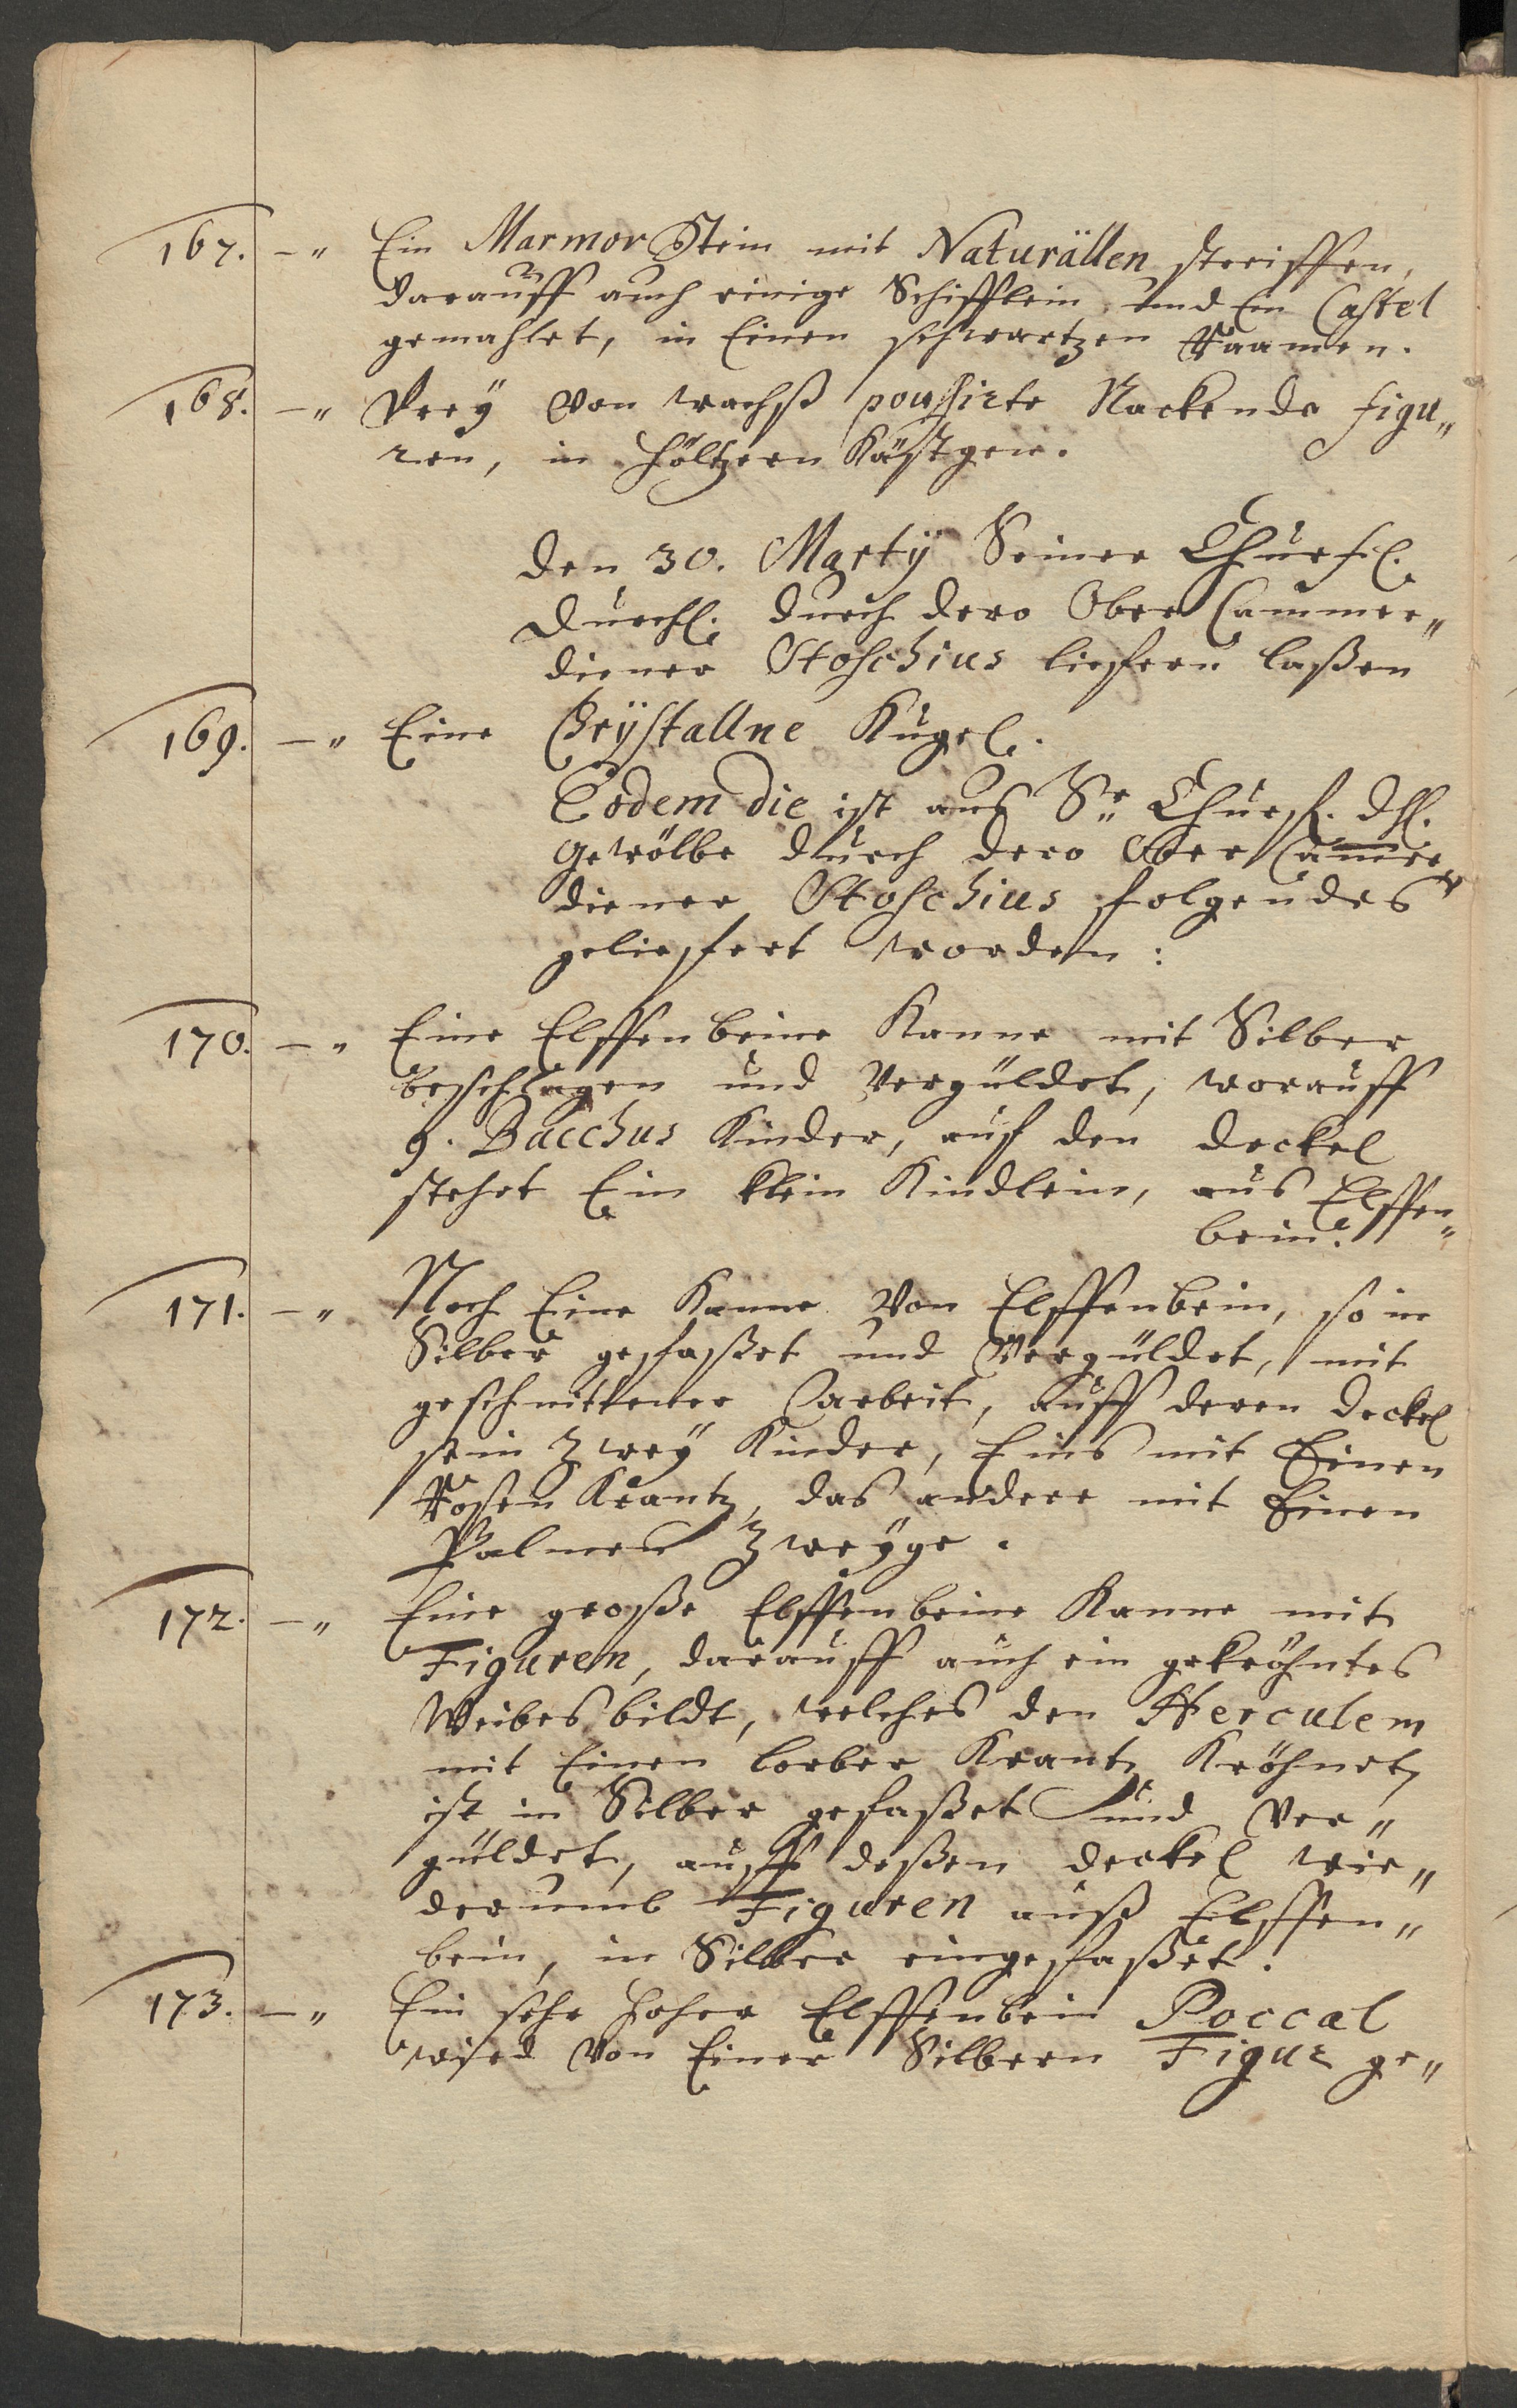 167. -" Ein Marmor Stein mit Naturällen streiffen,
darauff auch einige Schifflein und Ein Castel
gemahlet, in Einen schwartzen Raamen.
168. -" Drey von wachß poussirte Nackende figu"
ren, in höltzern Kästgen.
den 30. Martÿ Seiner Churfl.
Durchl. durch dero Ober Cammer"
diener Stoschius lieffern laßen
169. -" Eine Chrÿstallne Kugel.
Eodem die ist aus Sr. Churfl. Dhl.
Gewölbe durch dero Ober Cammer"
diener Stoschius folgendes
gelieffert worden:
170. -" Eine Elffenbeine Kanne mit Silber
beschlagen und vergüldet, worauff
9. Bacchus Kinder, auf den deckel
stehet Ein klein Kindlein, aus Elffen"
bein.
171. -" Noch Eine Kanne von Elffenbein, so in
Silber gefaßet und vergüldet, mit
geschnittener arbeit, auff deren deckel
sein zweÿ Kinder, Eins mit Einen
Rosen Krantz, das andere mit Einen
Palmen Zweÿge.
172. -" Eine große Elffenbeine Kanne mit
Figuren, darauff auch ein gekröhntes
Weibesbildt, welches den Herculem
mit Einen lorber Krantz Kröhnet,
ist in Silber gefaßet und ver"
güldet, auff deßen deckel wie"
derumb Figuren auß Elffen"
bein, in Silber eingefaßet.
173. -" Ein sehr hoher Elffenbein Poccal
wird von Einer Silbern Figur ge"